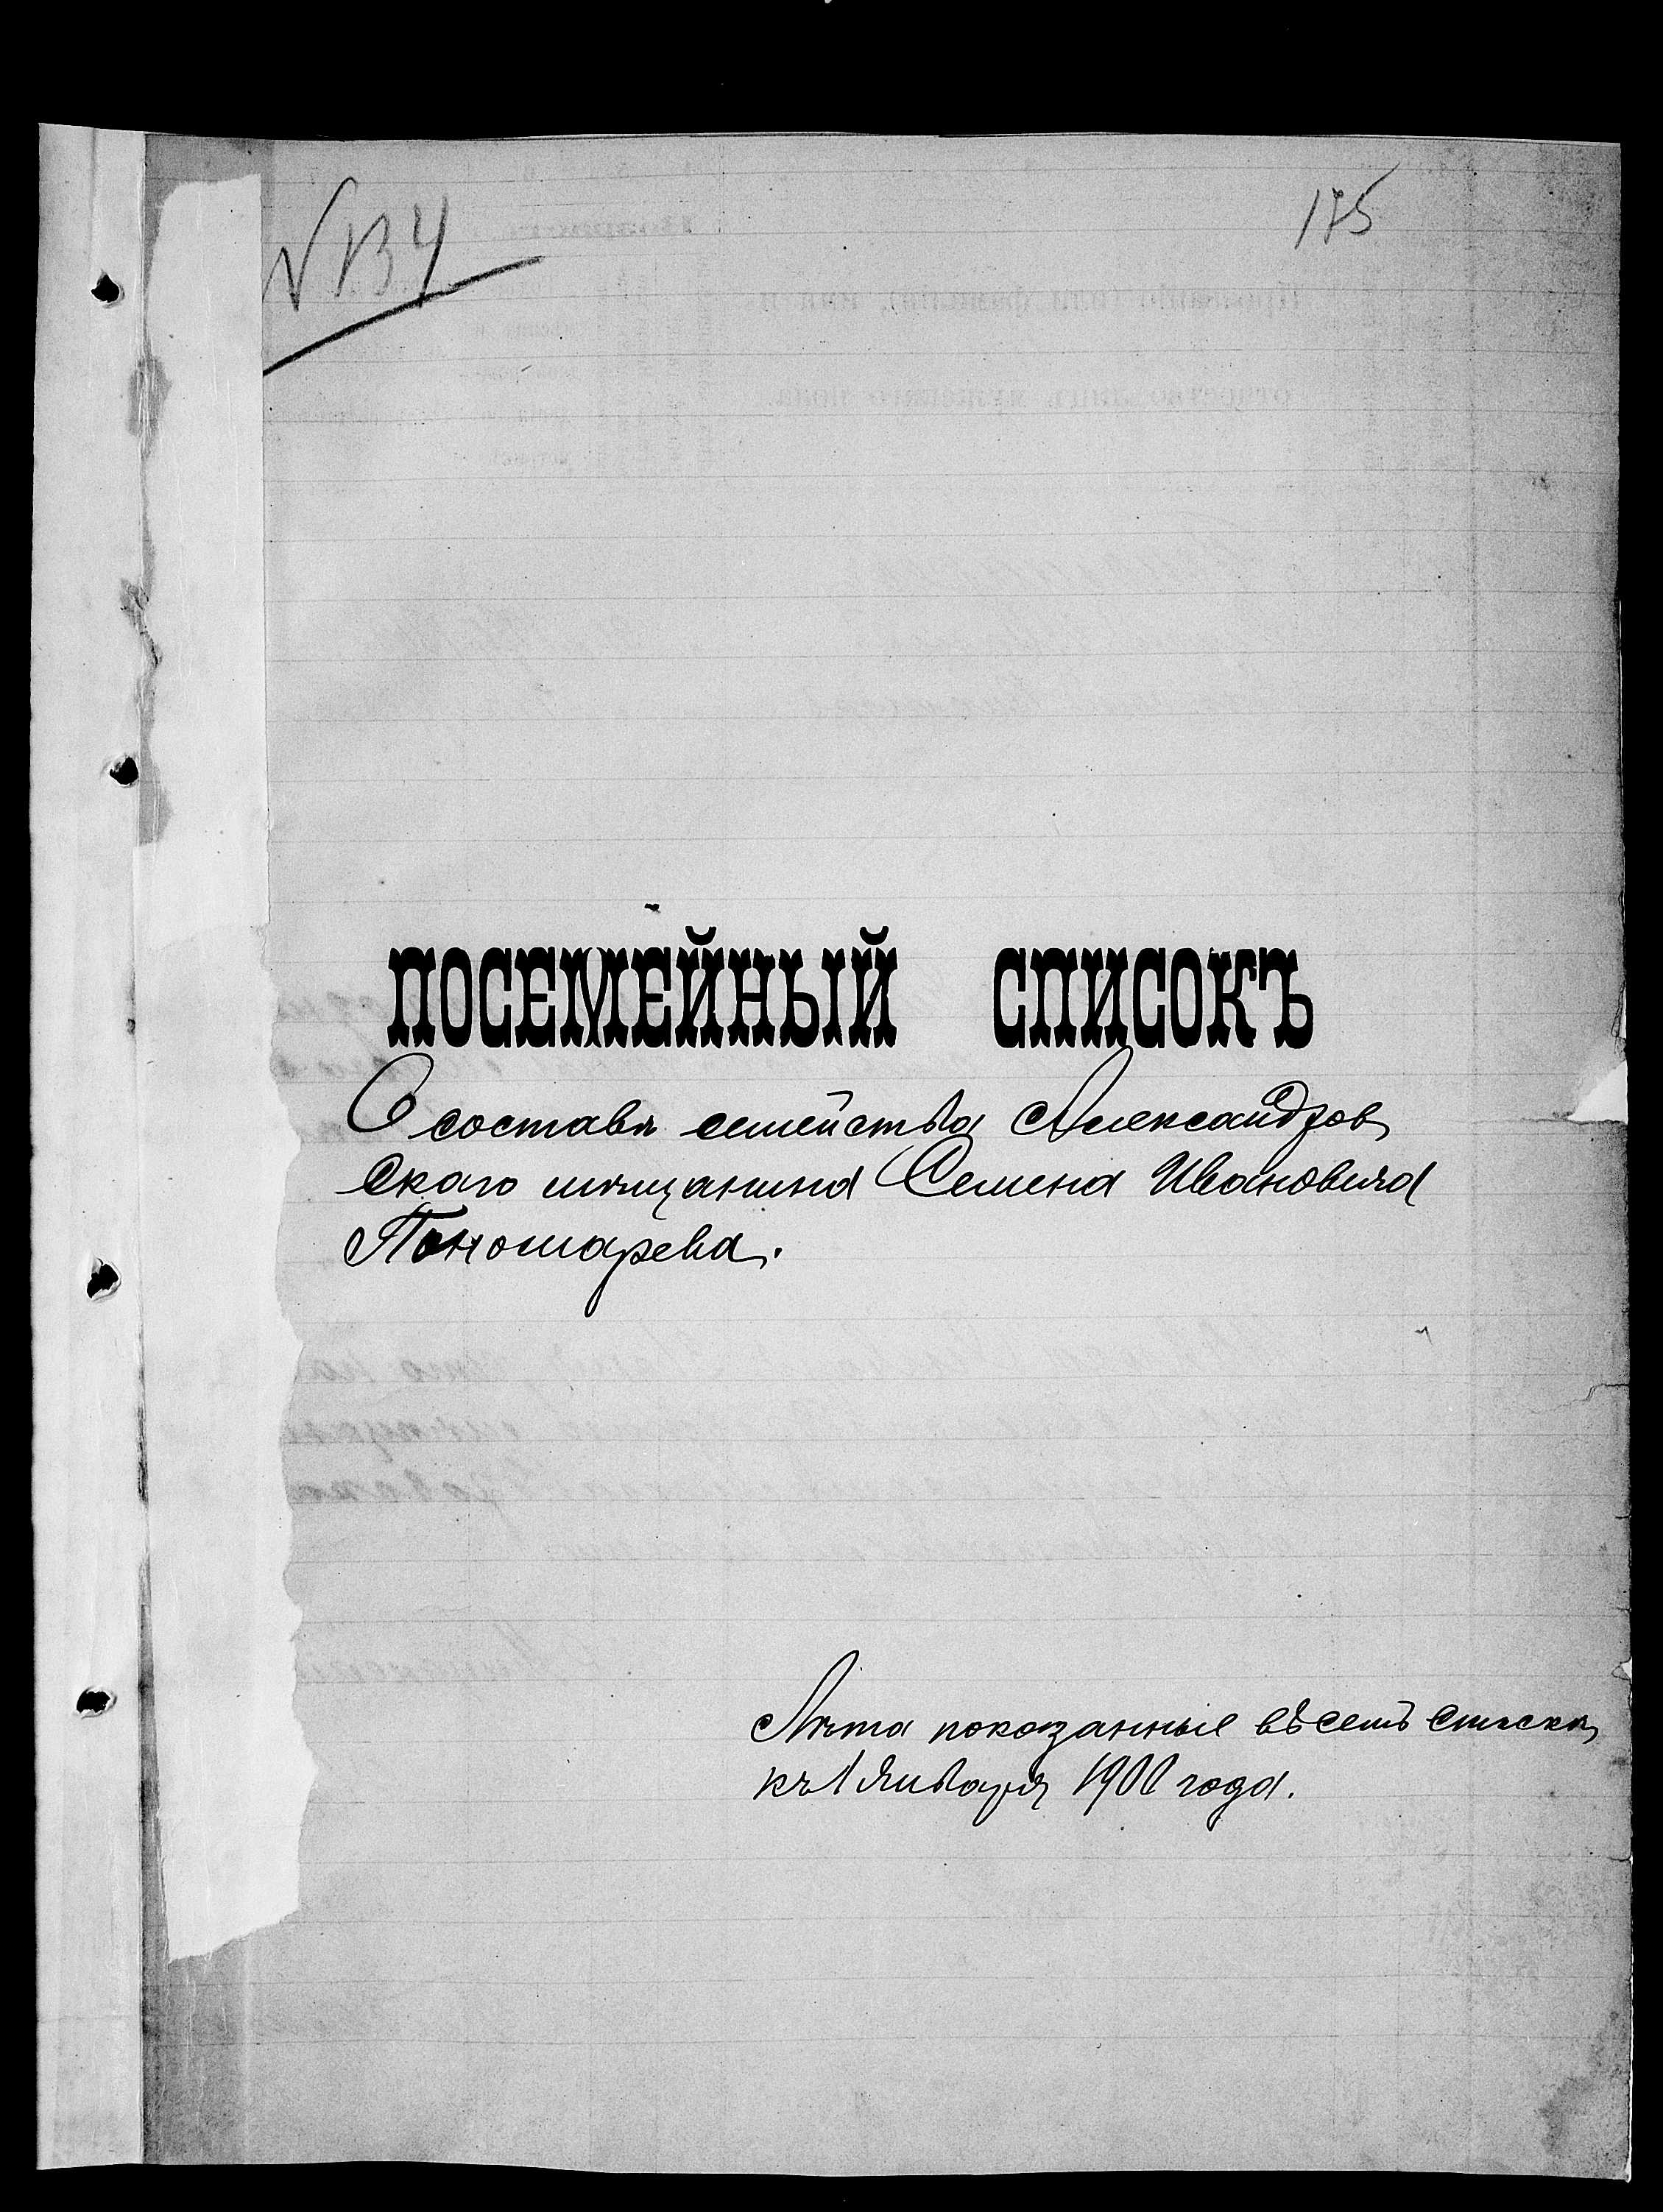 № 134
175
ПОСЕМЕЙНЫЙ СПИСОКЪ
О составѣ семейства Александров
скаго мѣщанина Семена Ивановича
Пономарева.
Лѣта показанные въ семъ списке
къ 1 Января 1900 года.